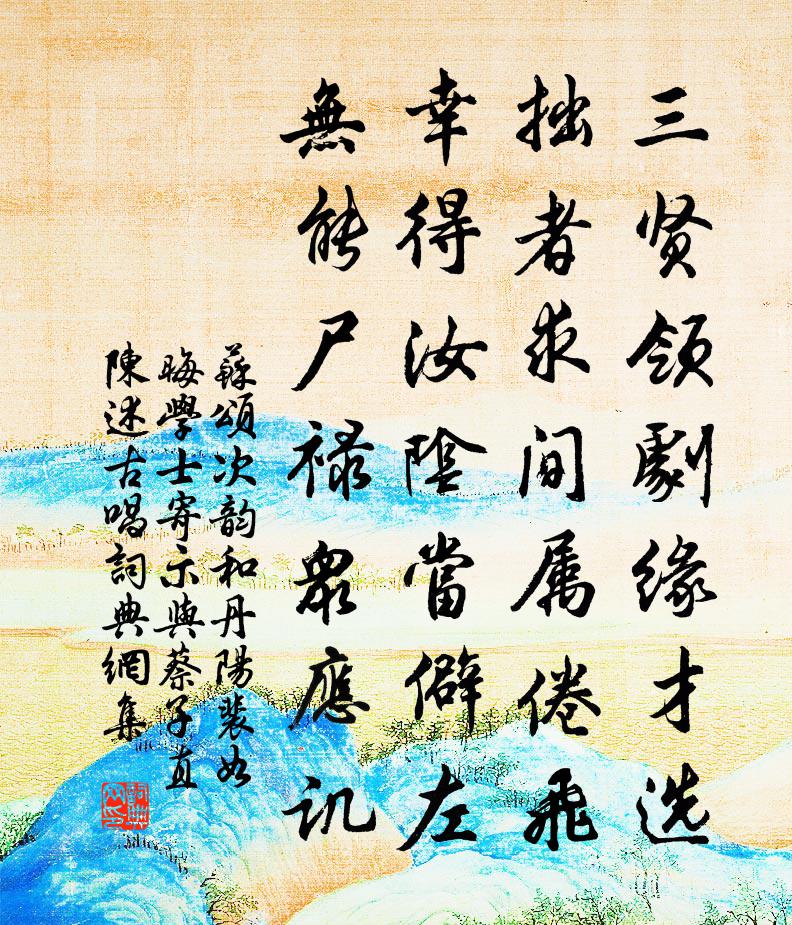 三贤領劇缘才选
拙者求间属倦飛
幸得汝陰當僻左
無能尸禄衆應讥
蘇頌次韵和丹陽裴如
晦學士寄示與蔡子直
陳述古唱詞典網集